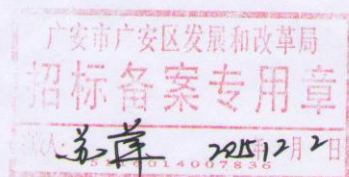 广安市广安区发展和改革局
招标备案专用章
人: 苏萍 2015年12月2日
14007836